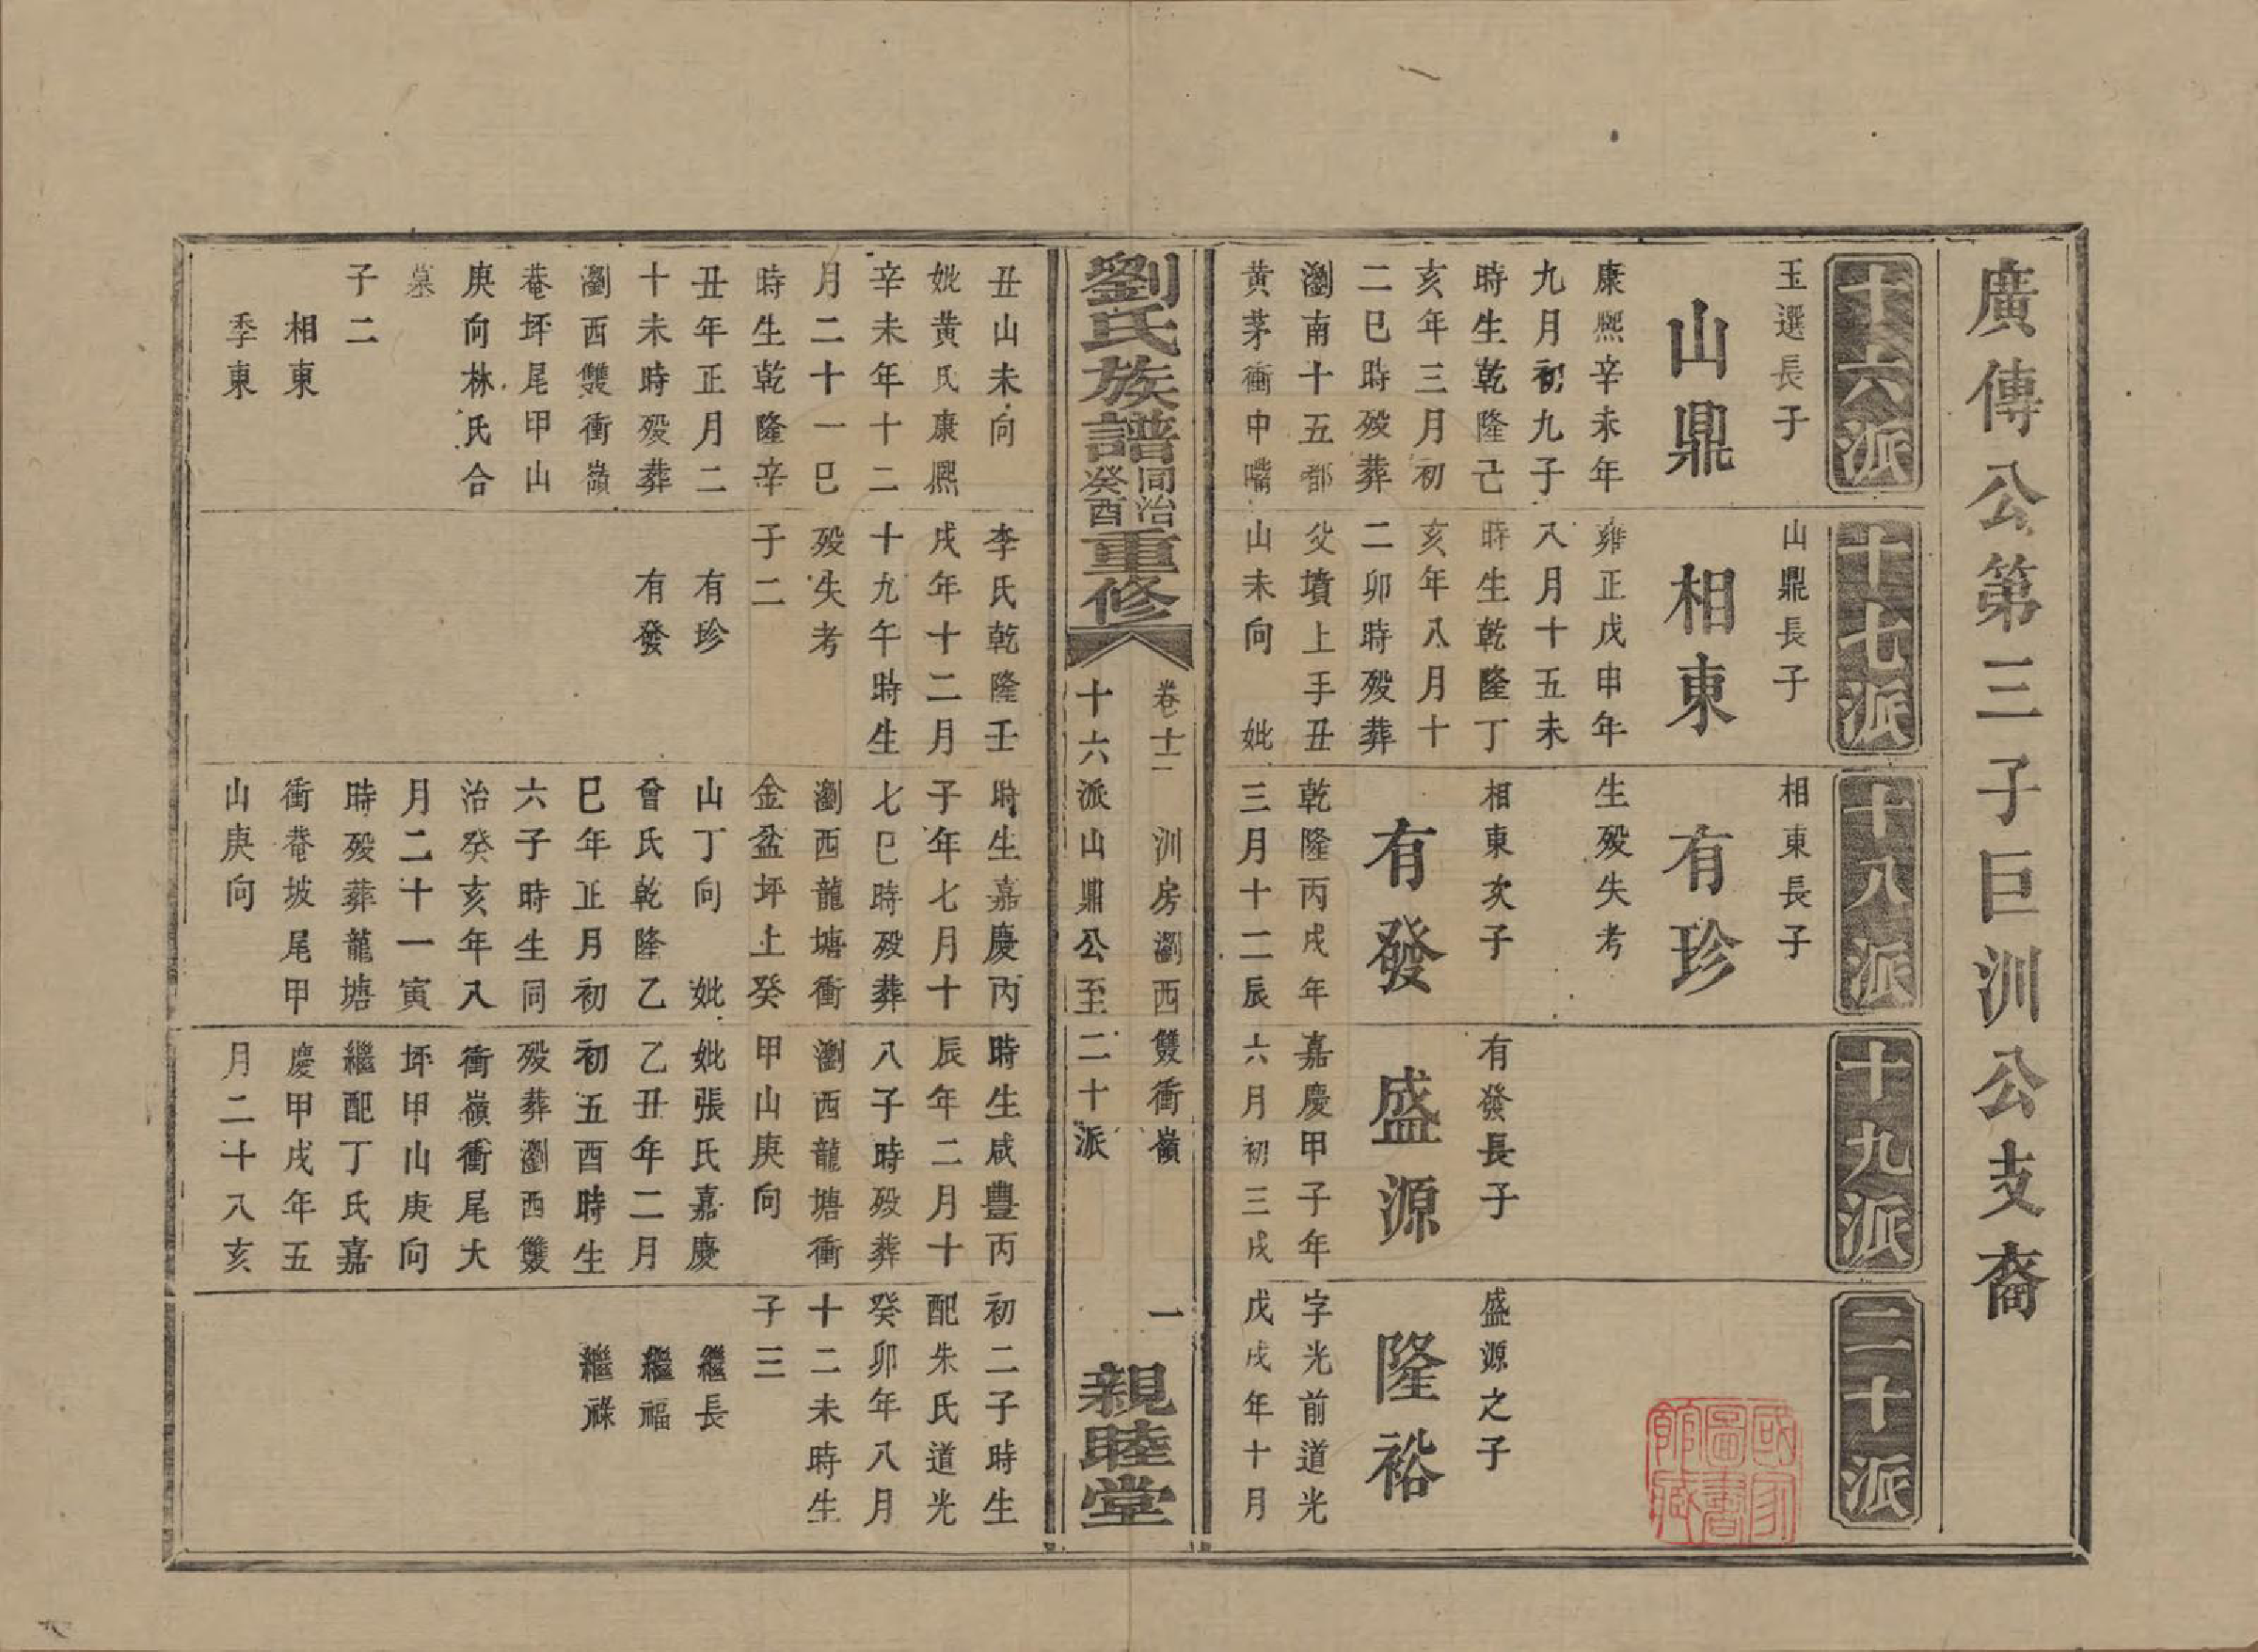 廣傳公第三子巨訓公支裔
十六派
玉選長子
山鼎
康熙辛未年
九月初九子
時生乾隆己
亥年三月初
二巳時殁葬
瀏南十五都
黃茅衝中嘴
十七派
山鼎長子
相東
雍正戊申年
八月十五未
時生乾隆丁
亥年八月十
二卯時殁葬
父墳上手丑
山未向 妣
十八派
相東長子
有珍
生殁失考
相東次子
有發
乾隆丙戌年
三月十二辰
十九派
有發長子
盛源
嘉慶甲子年
六月初三戌
二十派
盛源之子
隆裕
字光前道光
戊戌年十月
國家圖書館藏
劉氏族譜
同治
癸酉
重修
卷十二 訓房瀏西雙衝嶺 一
十六派山鼎公至二十派
親睦堂
丑山未向
妣黃氏康熙
辛未年十二
月二十一巳
時生乾隆辛
丑年正月二
十未時殁葬
瀏西雙衝嶺
菴坪尾甲山
庚向林氏合
墓
子二
相東
季東
李氏乾隆壬
戌年十二月
十九午時生
殁失考
子二
有珍
有發
時生嘉慶丙
子年七月十
七巳時殁葬
瀏西龍塘衝
金盆坪上癸
山丁向 妣
曾氏乾隆乙
巳年正月初
六子時生同
治癸亥年八
月二十一寅
時殁葬龍塘
衝菴坡尾甲
山庚向
時生咸豐丙
辰年二月十
八子時殁葬
瀏西龍塘衝
甲山庚向
妣張氏嘉慶
乙丑年二月
初五酉時生
殁葬瀏西雙
衝嶺衝尾大
坪甲山庚向
繼配丁氏嘉
慶甲戌年五
月二十八亥
初二子時生
配朱氏道光
癸卯年八月
十二未時生
子三
繼長
繼福
繼祿